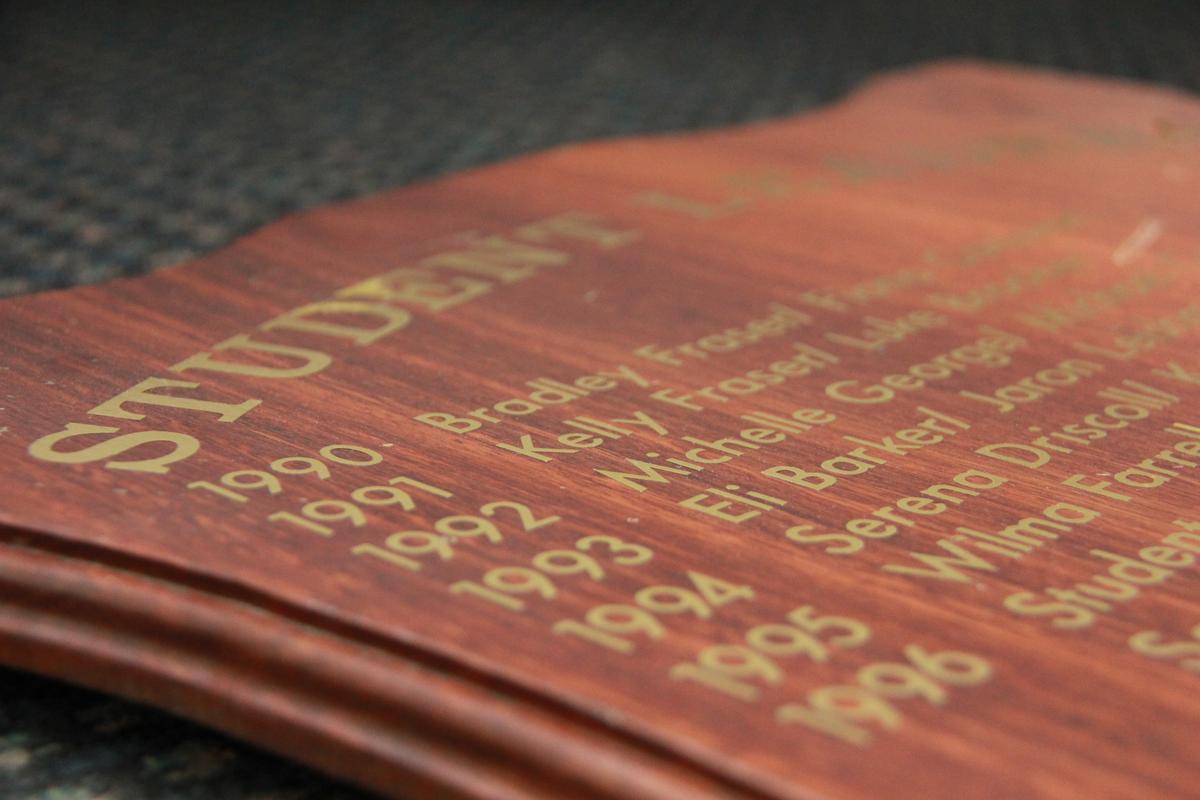 STUDENT
1990 Bradley Fraser/
1991 Kelly Fraser/ Luke
1992 Michelle George/
1993 Eli Barker/ Jaron
1994 Serena Driscoll/ K
1995 Wilma Farrell
1996 Student
S